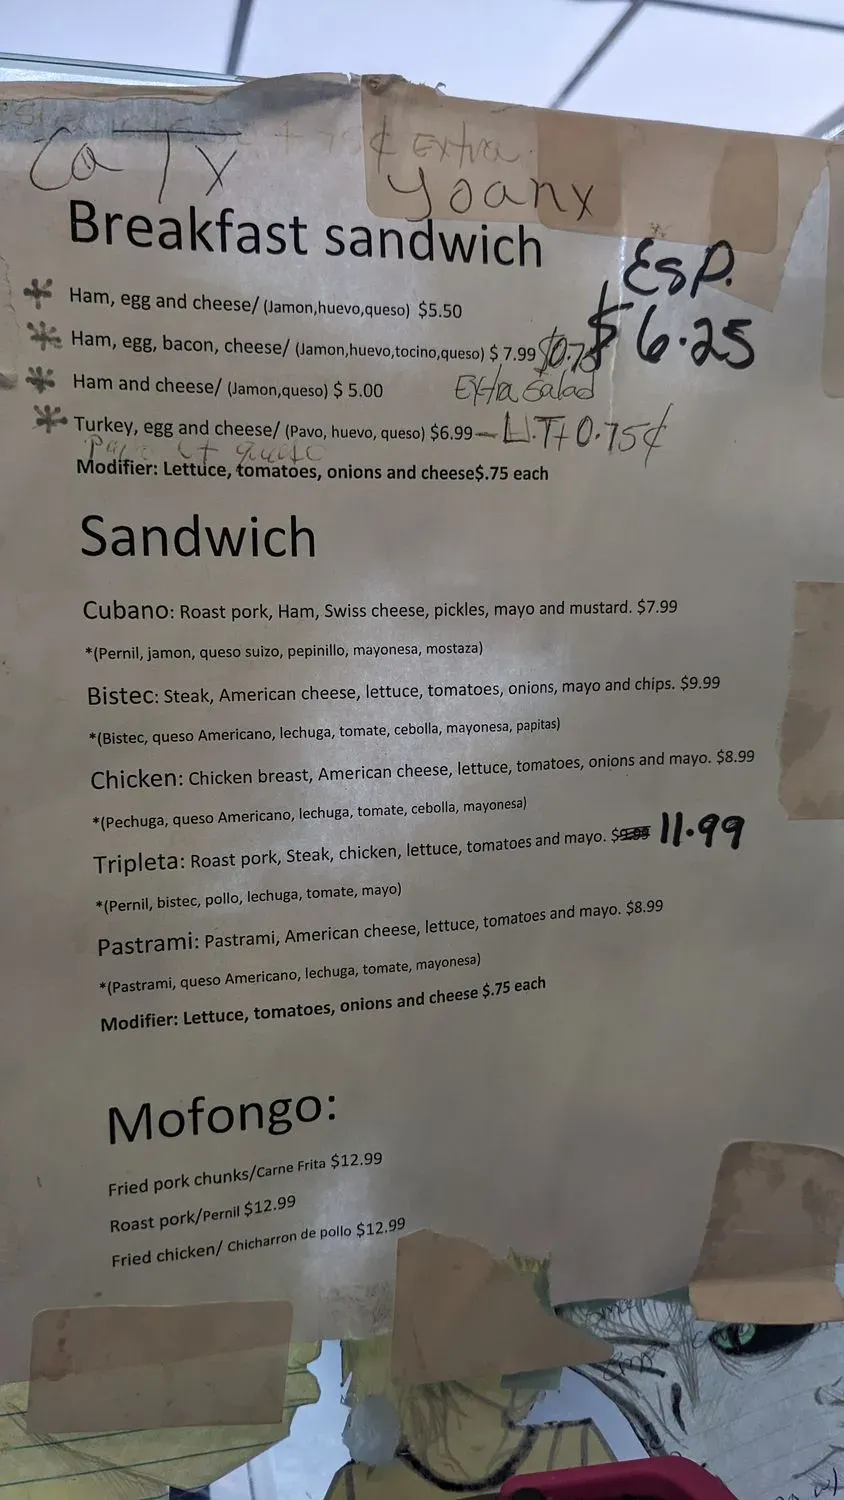 + 75 ¢ Extra
Ca TX yoanx
Breakfast sandwich
Esp.
$6.25
Ham, egg and cheese/ (Jamon,huevo,queso) $5.50
Ham, egg, bacon, cheese/ (Jamon,huevo,tocino,queso) $ 7.99 $0.75
Extra Salad
Ham and cheese/ (Jamon,queso) $ 5.00
Turkey, egg and cheese/ (Pavo, huevo, queso) $6.99 – L.T+ 0.75¢
queso
Modifier: Lettuce, tomatoes, onions and cheese$.75 each
Sandwich
Cubano: Roast pork, Ham, Swiss cheese, pickles, mayo and mustard. $7.99
*(Pernil, jamon, queso suizo, pepinillo, mayonesa, mostaza)
Bistec: Steak, American cheese, lettuce, tomatoes, onions, mayo and chips. $9.99
*(Bistec, queso Americano, lechuga, tomate, cebolla, mayonesa, papitas)
Chicken: Chicken breast, American cheese, lettuce, tomatoes, onions and mayo. $8.99
*(Pechuga, queso Americano, lechuga, tomate, cebolla, mayonesa)
Tripleta: Roast pork, Steak, chicken, lettuce, tomatoes and mayo. $9.99 11.99
*(Pernil, bistec, pollo, lechuga, tomate, mayo)
Pastrami: Pastrami, American cheese, lettuce, tomatoes and mayo. $8.99
*(Pastrami, queso Americano, lechuga, tomate, mayonesa)
Modifier: Lettuce, tomatoes, onions and cheese $.75 each
Mofongo:
Fried pork chunks/Carne Frita $12.99
Roast pork/Pernil $12.99
Fried chicken/ Chicharron de pollo $12.99